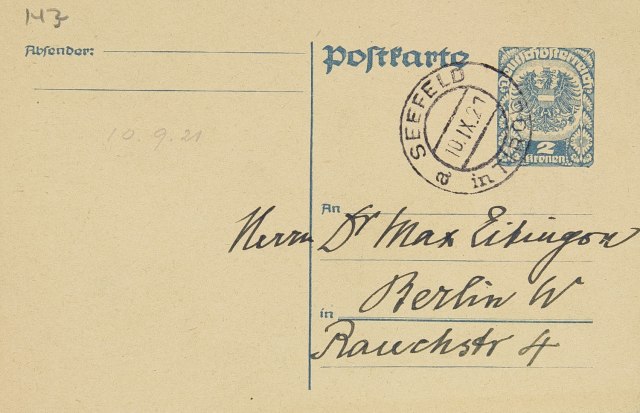 143
Absender:
Postkarte
Deutschösterreich
2
Kronen
SEEFELD
10.IX.21
a in TIROL
10.9.21
An
Herrn Dr Max Eitingon
Berlin W
in
Rauchstr 4